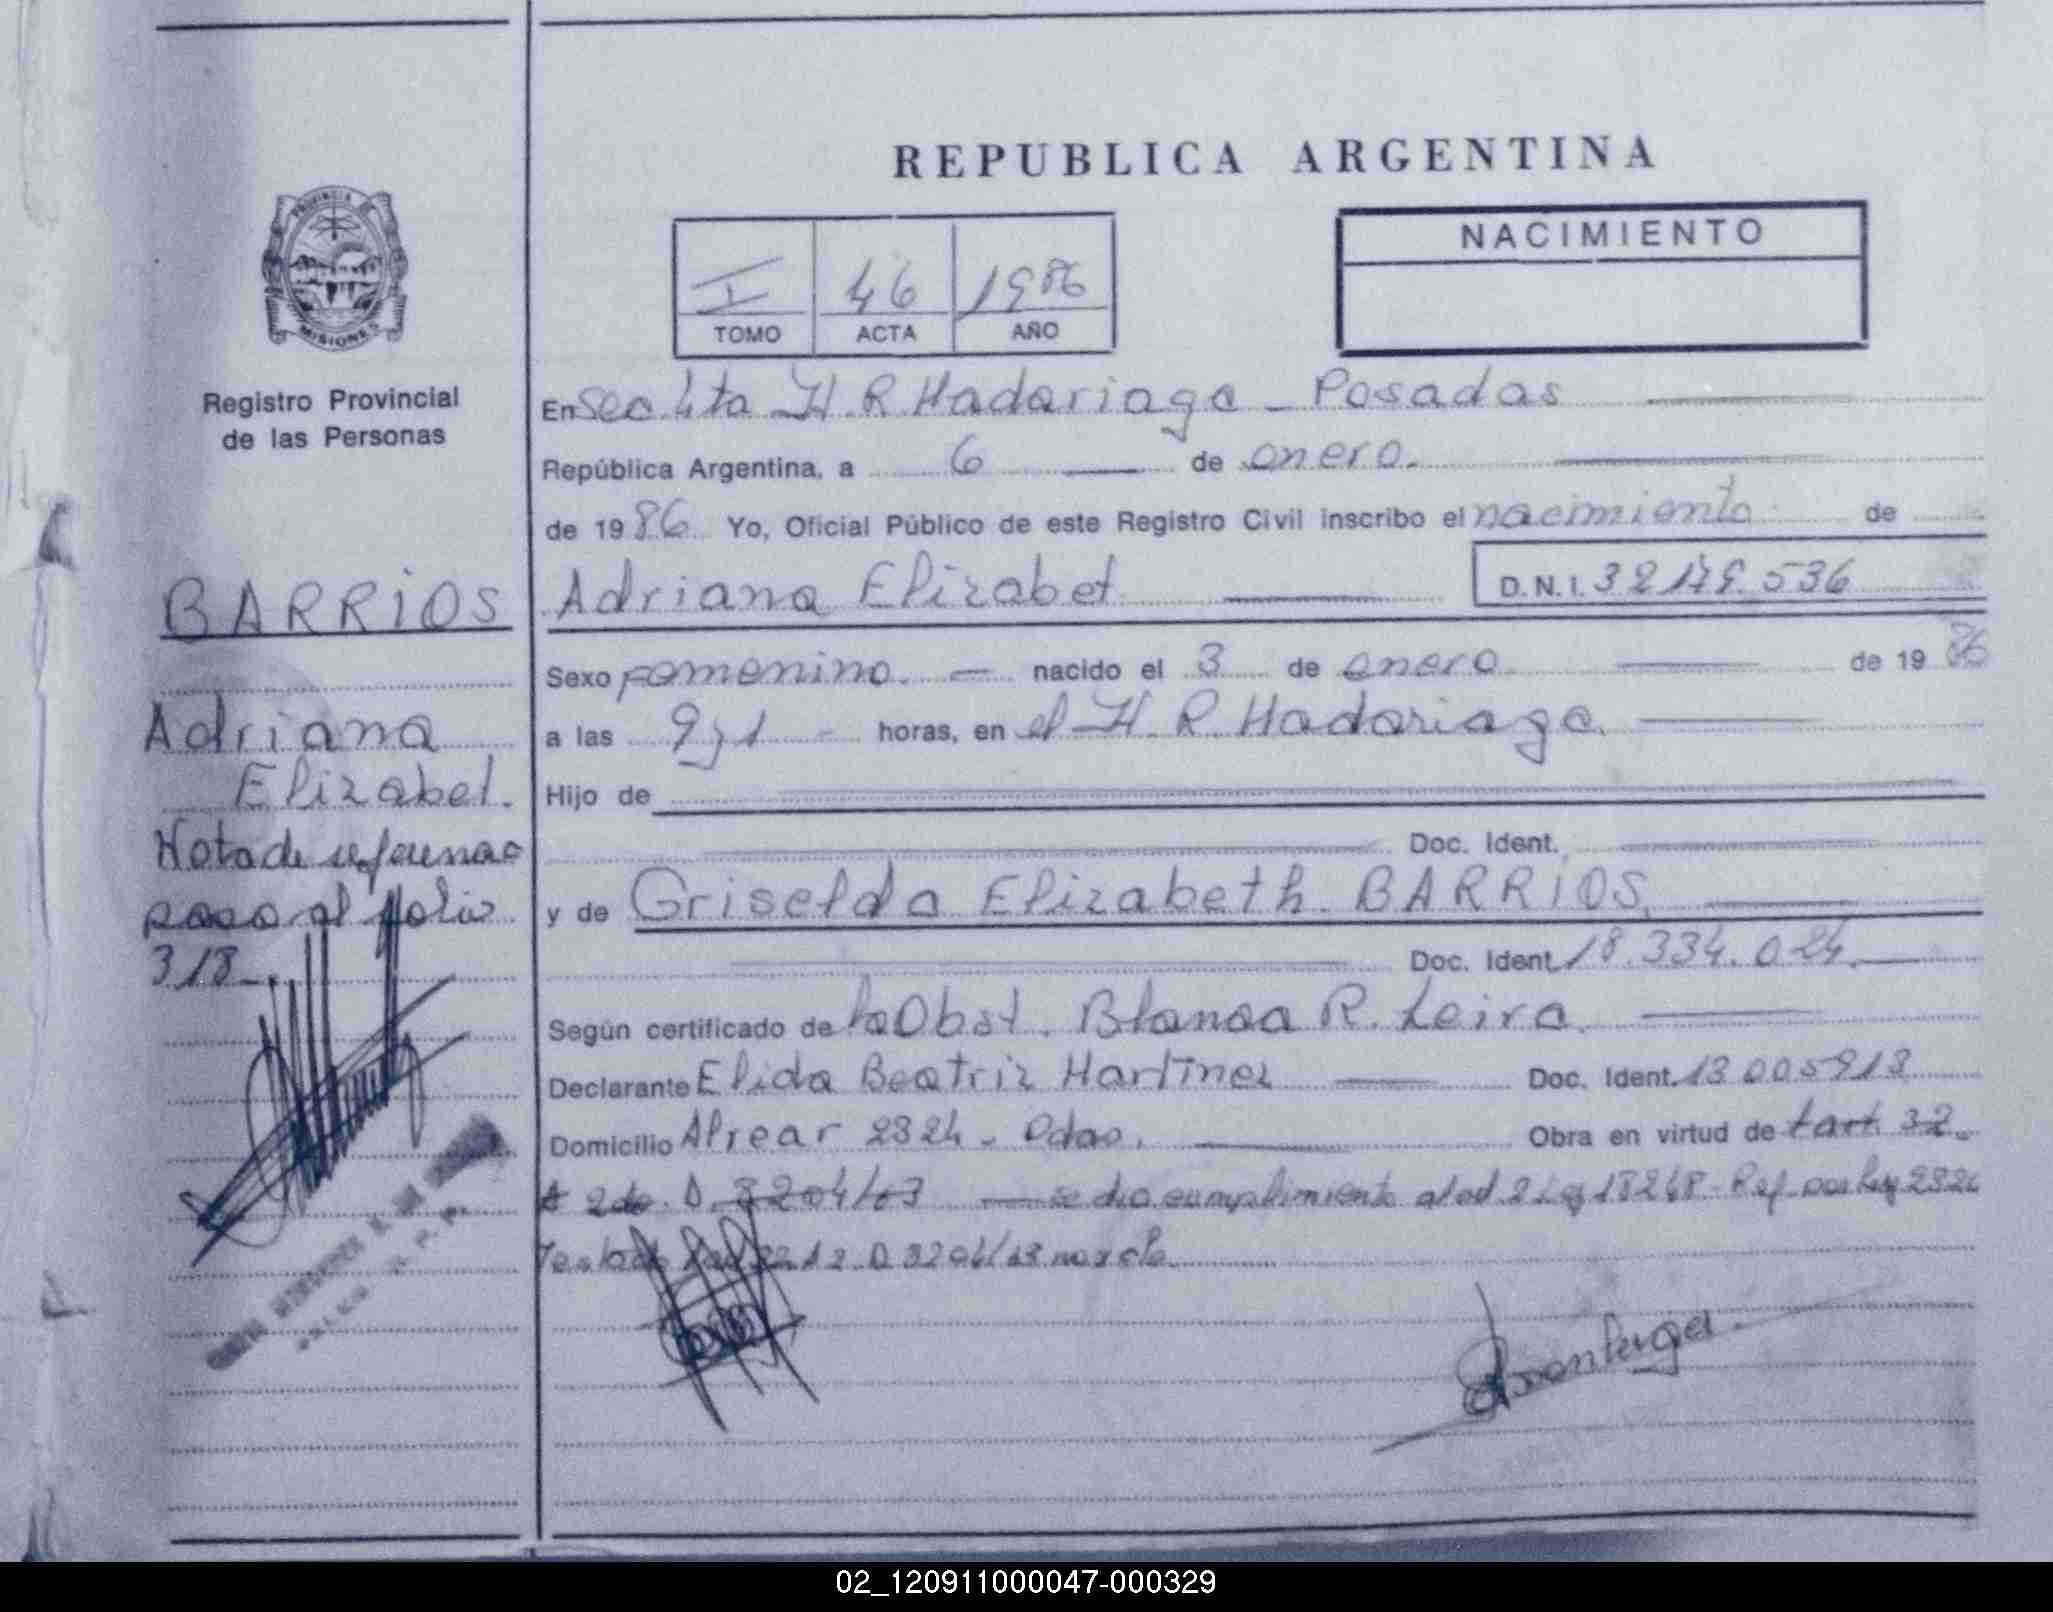 REPUBLICA ARGENTINA
PROVINCIA DE
MISIONES
Registro Provincial
de las Personas
I 46 1986
TOMO ACTA AÑO
NACIMIENTO
En Sec 4ta H. R. Madariaga - Posadas
República Argentina, a 6 de enero.
de 1986 Yo, Oficial Público de este Registro Civil inscribo el nacimiento de
Adriana Elizabet D.N.I. 536
Sexo femenino. nacido el 3 de enero de 19 86
a las 9 y 1 horas, en el H. R. Madariaga.
Hijo de
Doc. Ident.
y de Griselda Elizabeth BARRIOS
Doc. Ident. 18.334.024.
Según certificado de la Obst. Blanca R. Leira.
Declarante Elida Beatriz Martínez Doc. Ident. 13005913
Domicilio Alvear 2324 - Pdas. Obra en virtud de 
2do. D. 3204/63 se dio cumplimiento al art. 2 Ley 18248 - Ref. por Ley
3204/63 no vale.
BARRIOS
Adriana
Elizabet.
Nota de referencia
pasa al folio
318
02_120911000047-000329